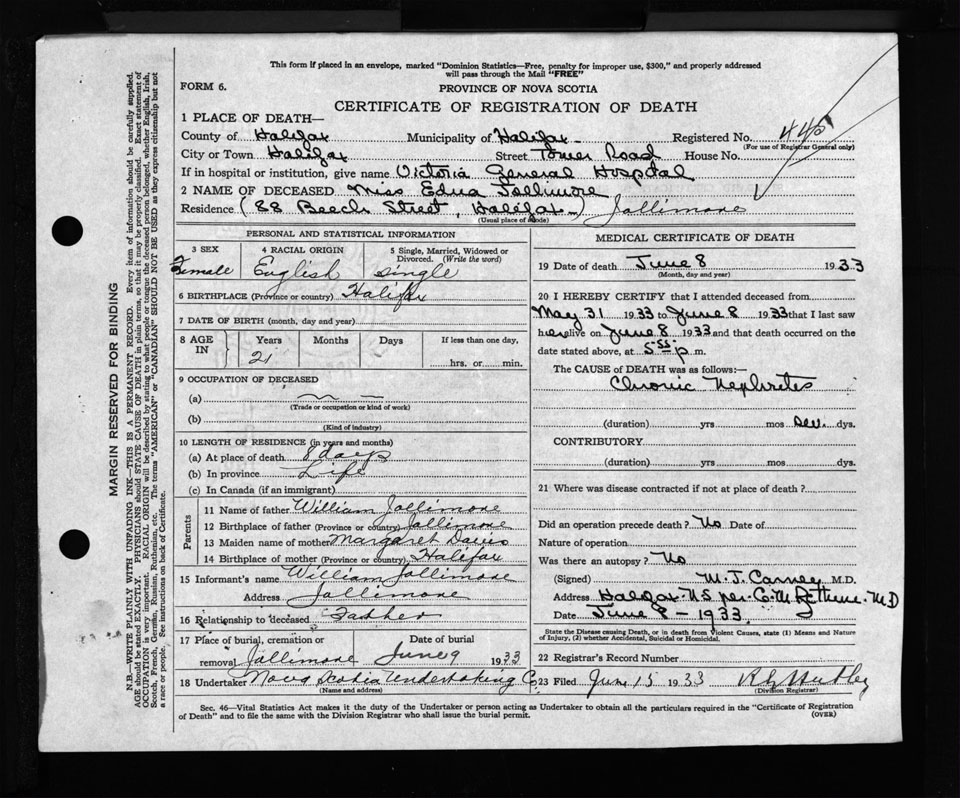 This form if placed in an envelope, marked "Dominion Statistics—Free, penalty for improper use, $300," and properly addressed
will pass through the Mail "FREE"
FORM 6.
PROVINCE OF NOVA SCOTIA
CERTIFICATE OF REGISTRATION OF DEATH
1 PLACE OF DEATH—
County of Halifax Municipality of Halifax Registered No.
(For use of Registrar General only)
City or Town Halifax Street Tower Road House No.
If in hospital or institution, give name Victoria General Hospital
2 NAME OF DECEASED Miss Edna Jollimore
Residence (88 Beech Street, Halifax) Jollimore
(Usual place of abode)
PERSONAL AND STATISTICAL INFORMATION
3 SEX 4 RACIAL ORIGIN 5 Single, Married, Widowed or
Divorced. (Write the word)
Female English single
6 BIRTHPLACE (Province or country) Halifax
7 DATE OF BIRTH (month, day and year)
8 AGE IN Years Months Days If less than one day,
21 hrs. or min.
9 OCCUPATION OF DECEASED
(a)
(Trade or occupation or kind of work)
(b)
(Kind of industry)
10 LENGTH OF RESIDENCE (in years and months)
(a) At place of death 8 days
(b) In province Life
(c) In Canada (if an immigrant)
Parents
11 Name of father William Jollimore
12 Birthplace of father (Province or country) Jollimore
13 Maiden name of mother Margaret Davis
14 Birthplace of mother (Province or country) Halifax
15 Informant's name William Jollimore
Address Jollimore
16 Relationship to deceased Father
17 Place of burial, cremation or Date of burial
removal Jollimore June 9 1933
18 Undertaker Nova Scotia Undertaking Co
(Name and address)
MEDICAL CERTIFICATE OF DEATH
19 Date of death June 8 1933
(Month, day and year)
20 I HEREBY CERTIFY that I attended deceased from
May 31 1933 to June 8 1933 that I last saw
her alive on June 8 1933 and that death occurred on the
date stated above, at 5.55 p m.
The CAUSE of DEATH was as follows:—
Chronic Nephrites
(duration) yrs mos dys.
CONTRIBUTORY
(duration) yrs. mos. dys.
21 Where was disease contracted if not at place of death?
Did an operation precede death? No Date of
Nature of operation
Was there an autopsy? No
(Signed) M. J. Carney M.D.
Address Halifax. N.S per C. M. M D
Date June 8 - 1933
State the Disease causing Death, or in death from Violent Causes, state (1) Means and Nature
of Injury, (2) whether Accidental, Suicidal or Homicidal.
22 Registrar's Record Number
23 Filed June 15 1933
(Division Registrar)
Sec. 46—Vital Statistics Act makes it the duty of the Undertaker or person acting as Undertaker to obtain all the particulars required in the "Certificate of Registration
of Death" and to file the same with the Division Registrar who shall issue the burial permit. (OVER)
MARGIN RESERVED FOR BINDING
N.B.—WRITE PLAINLY WITH UNFADING INK—THIS IS A PERMANENT RECORD. Every item of information should be carefully supplied.
AGE should be stated EXACTLY. PHYSICIANS should STATE CAUSE OF DEATH in plain terms, so that it may be properly classified. Exact statement of
OCCUPATION is very important. RACIAL ORIGIN will be described by stating to what people or tongue the deceased person belonged, whether English, Irish,
Scotch, French, German, Russian, Ruthenian, etc. The terms "AMERICAN" or "CANADIAN" SHOULD NOT BE USED as they express citizenship but not
a race or people. See instructions on back of Certificate.